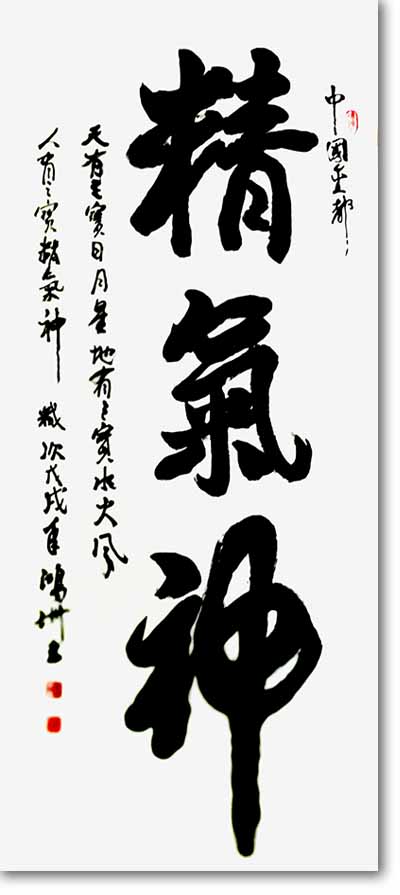 中國都
精氣神
天有三寶日月星地有三寶水火風
人有三寶精氣神 歲次戊戌年鴻州书